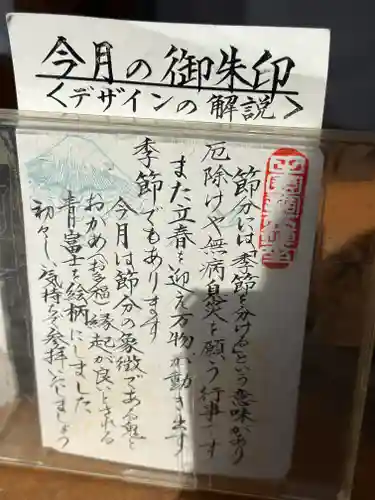 今月の御朱印
<デザインの解説>
節分には季節を分けるという意味があり
厄除けや無病息災を願う行事です
また立春を迎え万物が動き出す
季節でもあります
今月は節分の象徴である鬼と
おかめ(お多福)縁起が良いとされる
青富士を絵柄にしました
初々しい気持ちで参拝いたしましょう